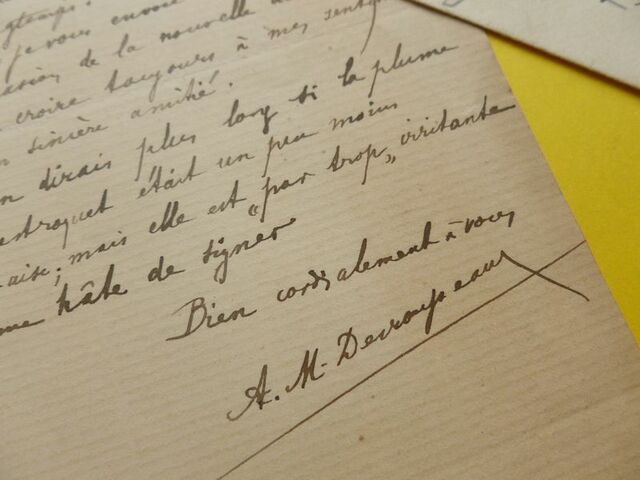 je vous envoie
de la nouvelle
croire toujours à mes
sincère amitié.
dirais plus long si la plume
était un peu moins
; mais elle est "par trop" irritante
hâte de signer
Bien cordialement à vous
A. M. Devroupeaux